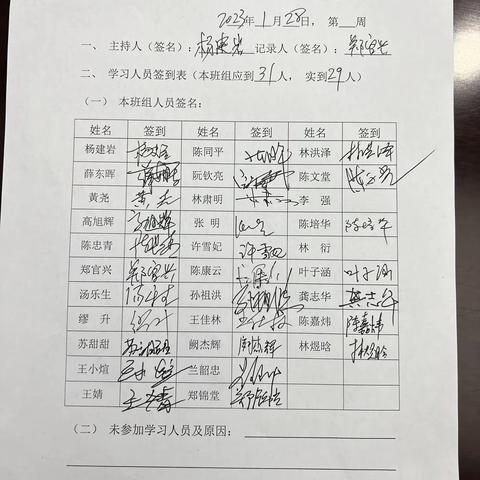 2023年1月28日，第 周
一、主持人（签名）：杨建岩 记录人（签名）：郑官兴
二、学习人员签到表（本班组应到31人，实到29人）
（一）本班组人员签名：
姓名 签到 姓名 签到 姓名 签到
杨建岩 陈同平 林洪泽 林洪泽
薛东晖 阮钦亮 陈文堂
黄尧 黄尧 林肃明 李强
高旭辉 高旭辉 张明 陈培华 陈培华
陈忠青 许雪妃 许雪妃 林衍
郑官兴 郑官兴 陈康云 叶子涵 叶子涵
汤乐生 孙祖洪 龚志华 龚志华
缪升 王佳林 陈嘉炜 陈嘉炜
苏甜甜 苏甜甜 阙杰辉 阙杰辉 林煜晗 林煜晗
王小煊 兰韶忠
王婧 王婧 郑锦堂
（二）未参加学习人员及原因：